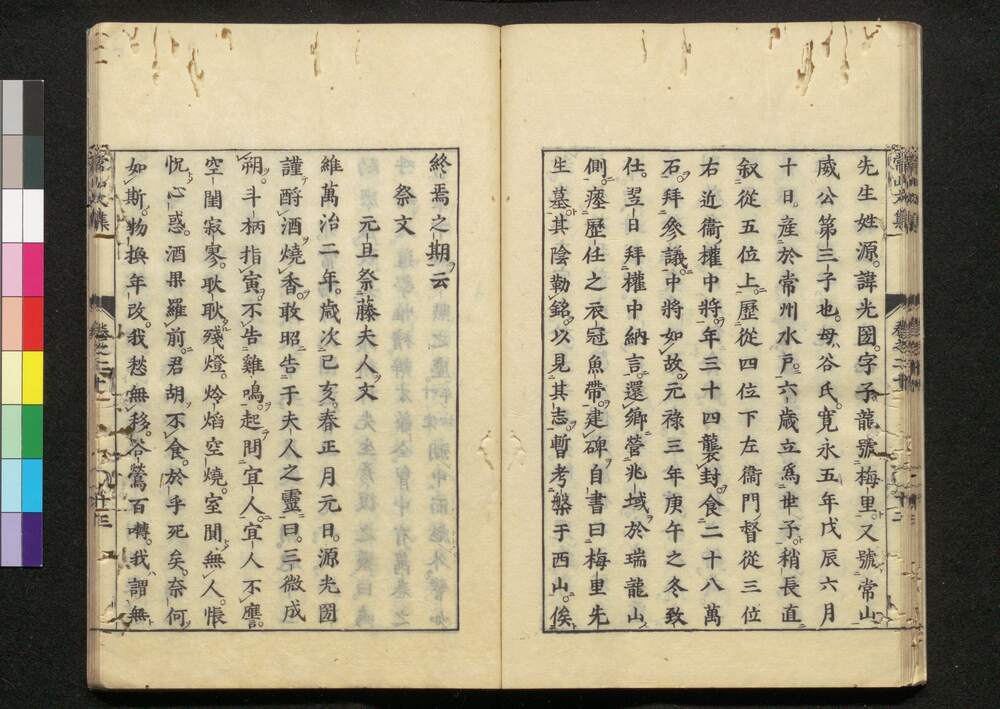 先生姓源。諱光圀。字子龍。號梅里。又號常山
威公第三子也。母谷氏。寛永五年戊辰六月
十日。産於常州水戸。六歳立爲世子。稍長直
叙從五位上。歷從四位下左衞門督從三位
右近衞權中將。年三十四襲封。食二十八萬
石。拜參議。中將如故。元祿三年庚午之冬致
仕。翌日拜權中納言。還鄉營兆域於瑞龍山
側。瘞歷任之衣冠魚帶。建碑自書曰梅里先
生墓。其陰勒銘。以見其志。暫考槃于西山。俟
終焉之期云
祭文
元旦祭藤夫人文
維萬治二年。歲次己亥。春正月元日。源光圀
謹酹酒燒香。敢昭告于夫人之靈曰。三微成
朔。斗柄指寅。不告雞鳴。起問宜人。宜人不應。
空閨寂寥。耿耿殘燈。焓焰空燒。室聞無人。悵
怳心惑。酒果羅前。君胡不食。於乎死矣。奈何
如斯。物換年改。我愁無移。谷鶯百囀。我謂無
常山文集
卷之二十